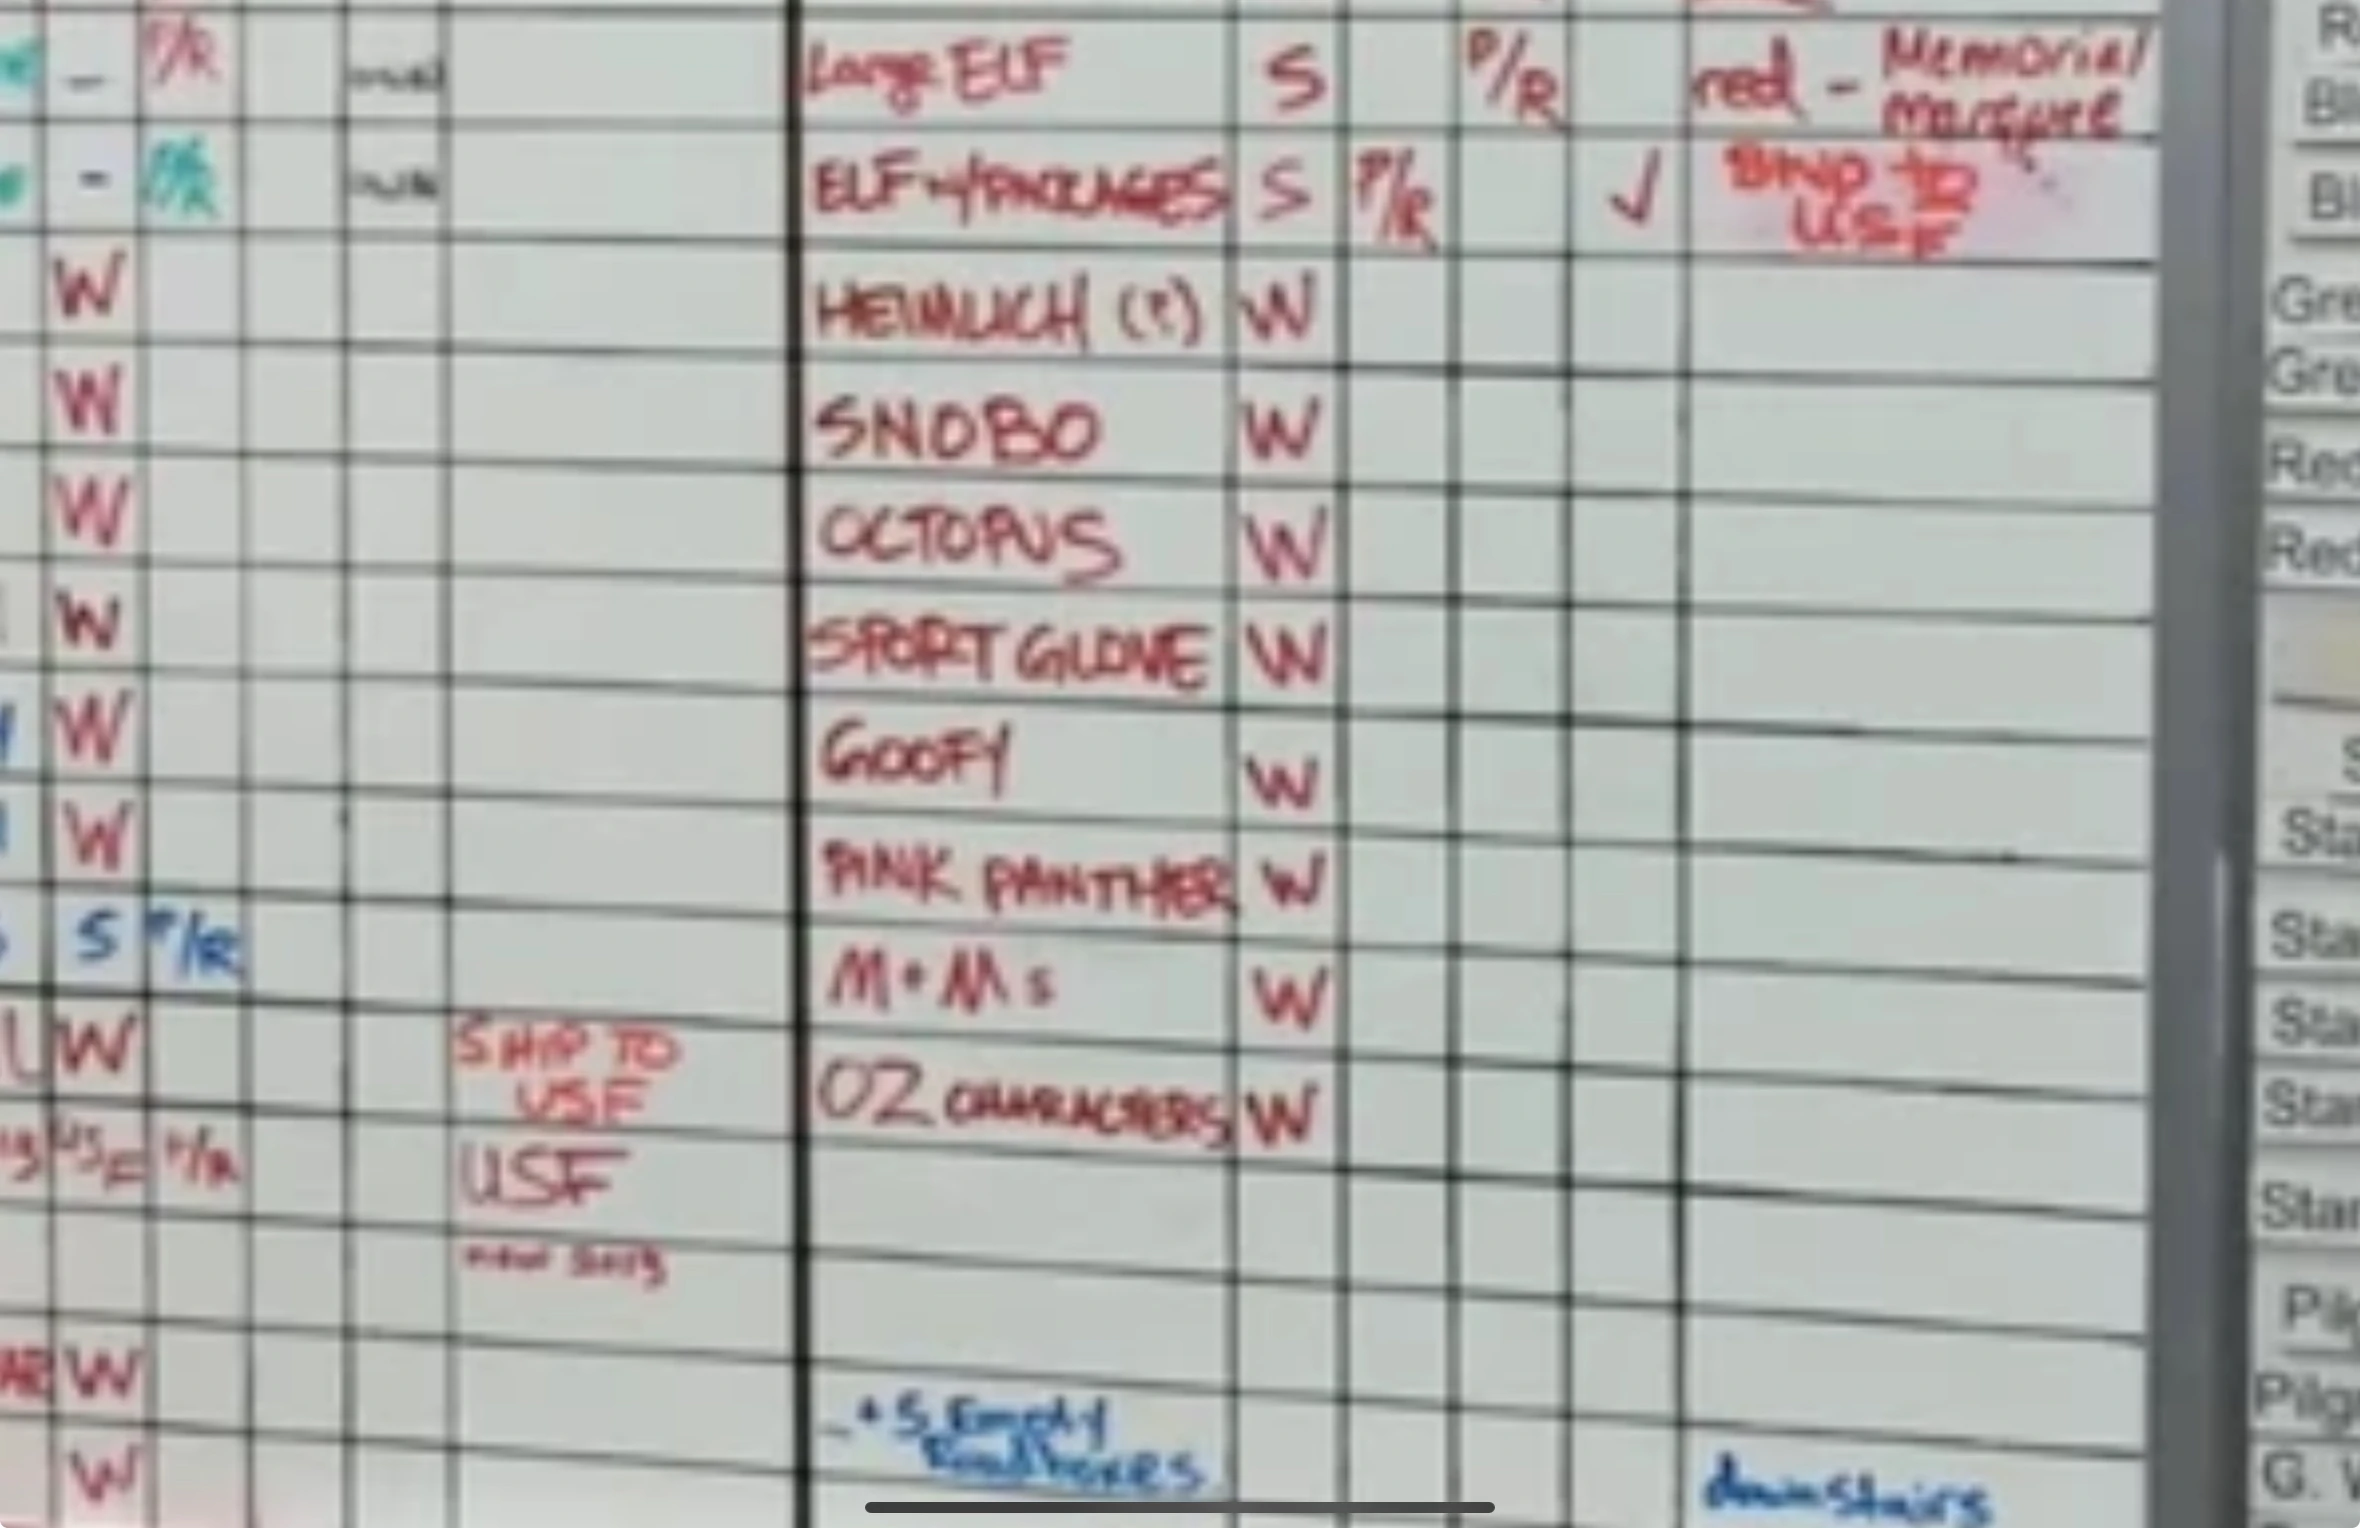 P/R
Large ELF S P/R red - Memorial
marquee
- P/R
ELF w/PACKAGES S P/R ✓ BND TO
USF
W HEIMLICH (?) W
W SNOBO W
W OCTOPUS W
W SPORT GLOVE W
W GOOFY W
W PINK PANTHER W
S P/R M+Ms W
W SHIP TO
USF
OZ CHARACTERS W
USF P/R USF
new song
W
+ 5 Empty
Roadboxes
W downstairs
R
Bl
Bl
Gre
Gre
Red
Red
S
Sta
Sta
Sta
Star
Star
Pilg
Pilgr
G. W